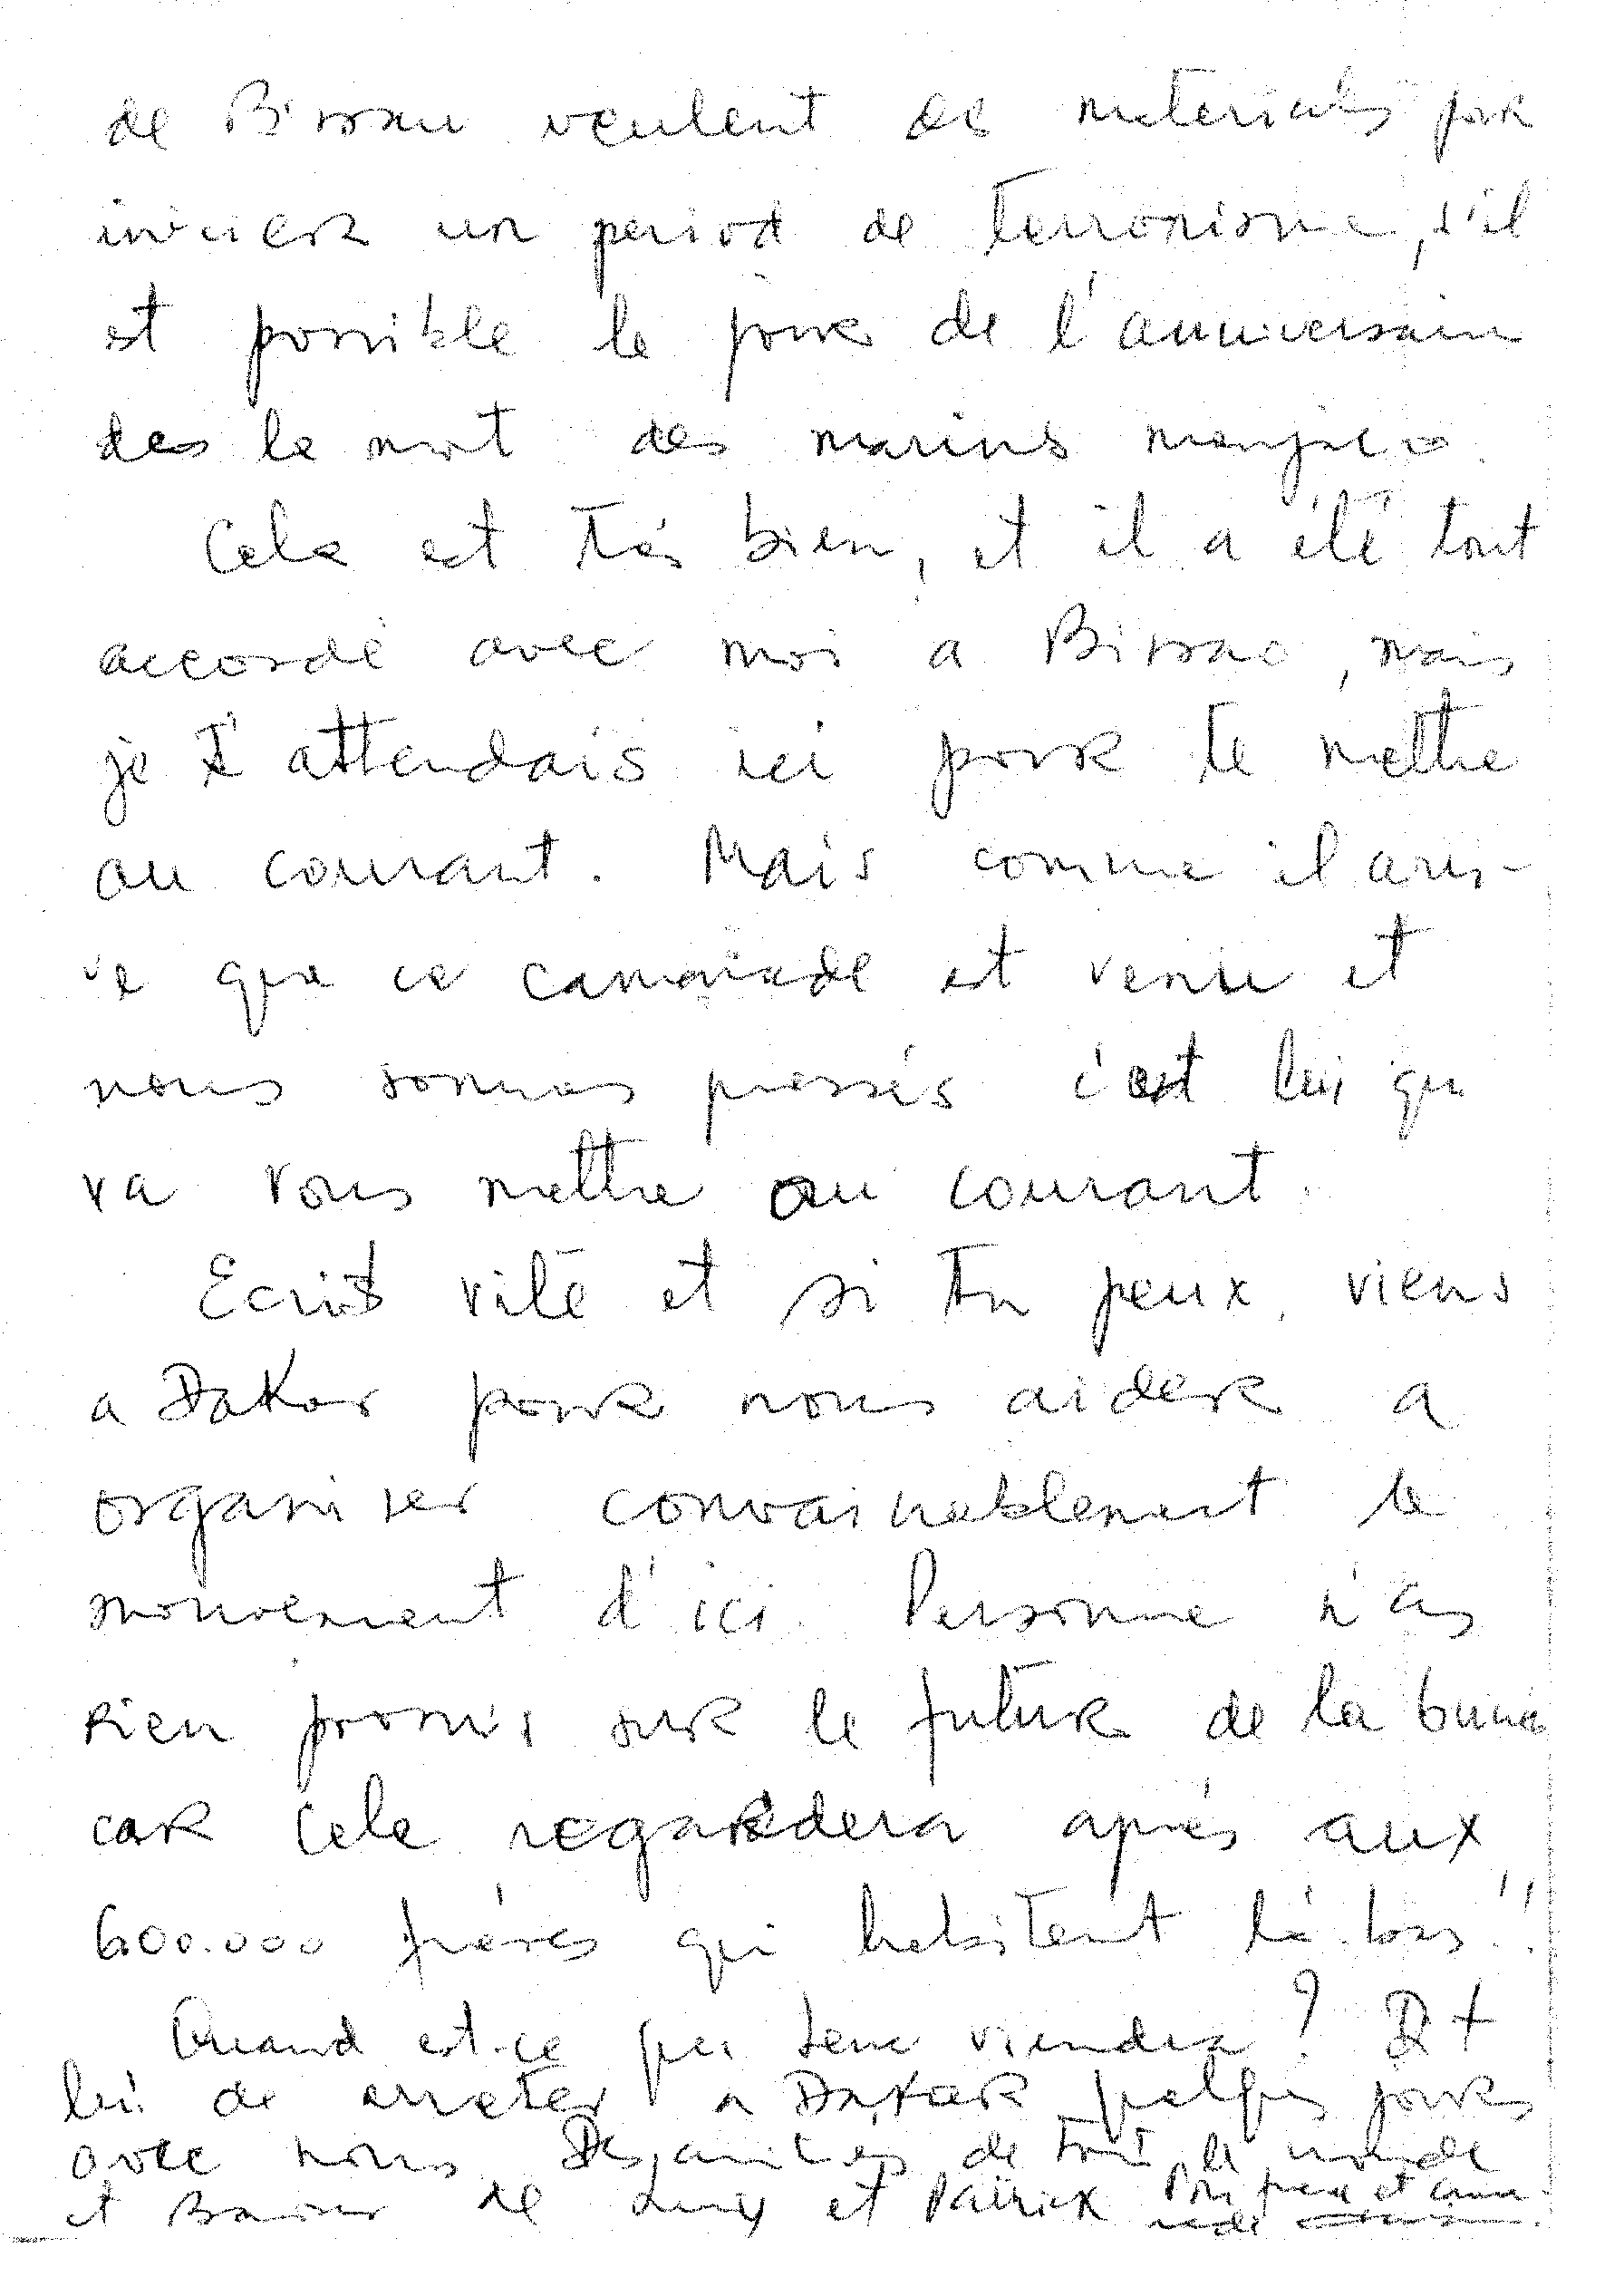 de Bissau veulent de materials pour
inicier un period de terrorisme, s'il
est possible le jour de l'anniversaire
des le mort des marins manjaco.
Cela est trés bien, et il a été tout
accordé avec moi a Bissao, mais
je t'attendais ici pour te mettre
au courant. Mais comme il arri-
ve que ce camarade est venu et
nous sommes pressés c'est lui qui
va vous mettre au courant.
Ecrit vite et si tu peux, viens
a Dakar pour nous aider a
organiser convainablement le
mouvement d'ici. Personne n'as
rien promis sur le futur de la Guiné
car cela regardera aprés aux
600.000 fréres qui habitent là-bas!!
Quand est-ce que viendra? Dit
lui de arreter a Dakar quelques jours
avec nous. Des amitiés de tout le monde
et Baiser de Lucy et Patrick Ton frere et cama-
rade